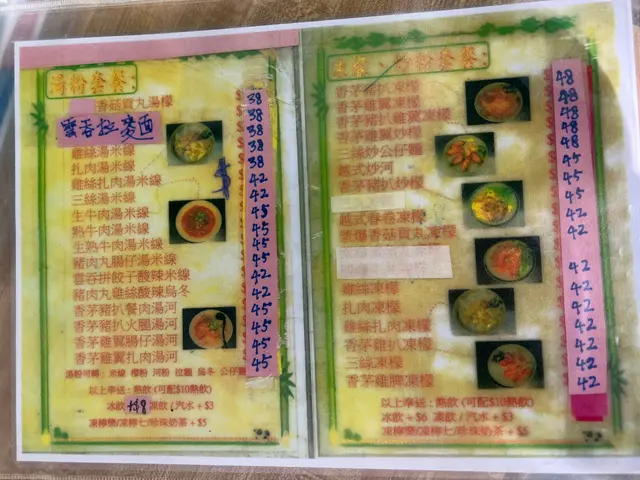 湯粉套餐
香菇貢丸湯檬 38
雲吞拉麵 38
38
雞絲湯米線 38
扎肉湯米線 38
雞絲扎肉米線 42
三絲湯米線 42
生牛肉湯米線 45
熟牛肉湯米線 45
生熟牛肉湯米線 45
豬肉丸腸仔湯米線 45
雲吞拼餃子酸辣米線 42
豬肉丸雞絲酸辣烏冬 42
香茅豬扒餐肉湯河 45
香茅豬扒火腿湯河 45
香茅雞翼腸仔湯河 45
香茅雞翼扎肉湯河 45
湯粉可轉：米線 檬粉 河粉 拉麵 烏冬 公仔麵
以上奉送：熱飲 (可配$10熱飲)
冰飲 +$8 凍飲 / 汽水 + $3
凍檸樂/凍檸七/珍珠奶茶 + $5
炒粉套餐
香茅豬扒凍檬 48
香茅雞翼凍檬 48
香茅豬扒雞翼凍檬 48
香茅雞翼炒檬 48
三絲炒公仔麵 45
越式炒河 45
香茅豬扒炒檬 45
越式春卷凍檬 42
漿爆香菇貢丸凍檬 42
雞絲凍檬 42
扎肉凍檬 42
雞絲扎肉凍檬 42
香茅雞扒凍檬 42
三絲凍檬 42
香茅雞脾凍檬 42
以上奉送：熱飲 (可配$10熱飲)
冰飲 + $6 凍飲 / 汽水 + $3
凍檸樂/凍檸七/珍珠奶茶 + $5